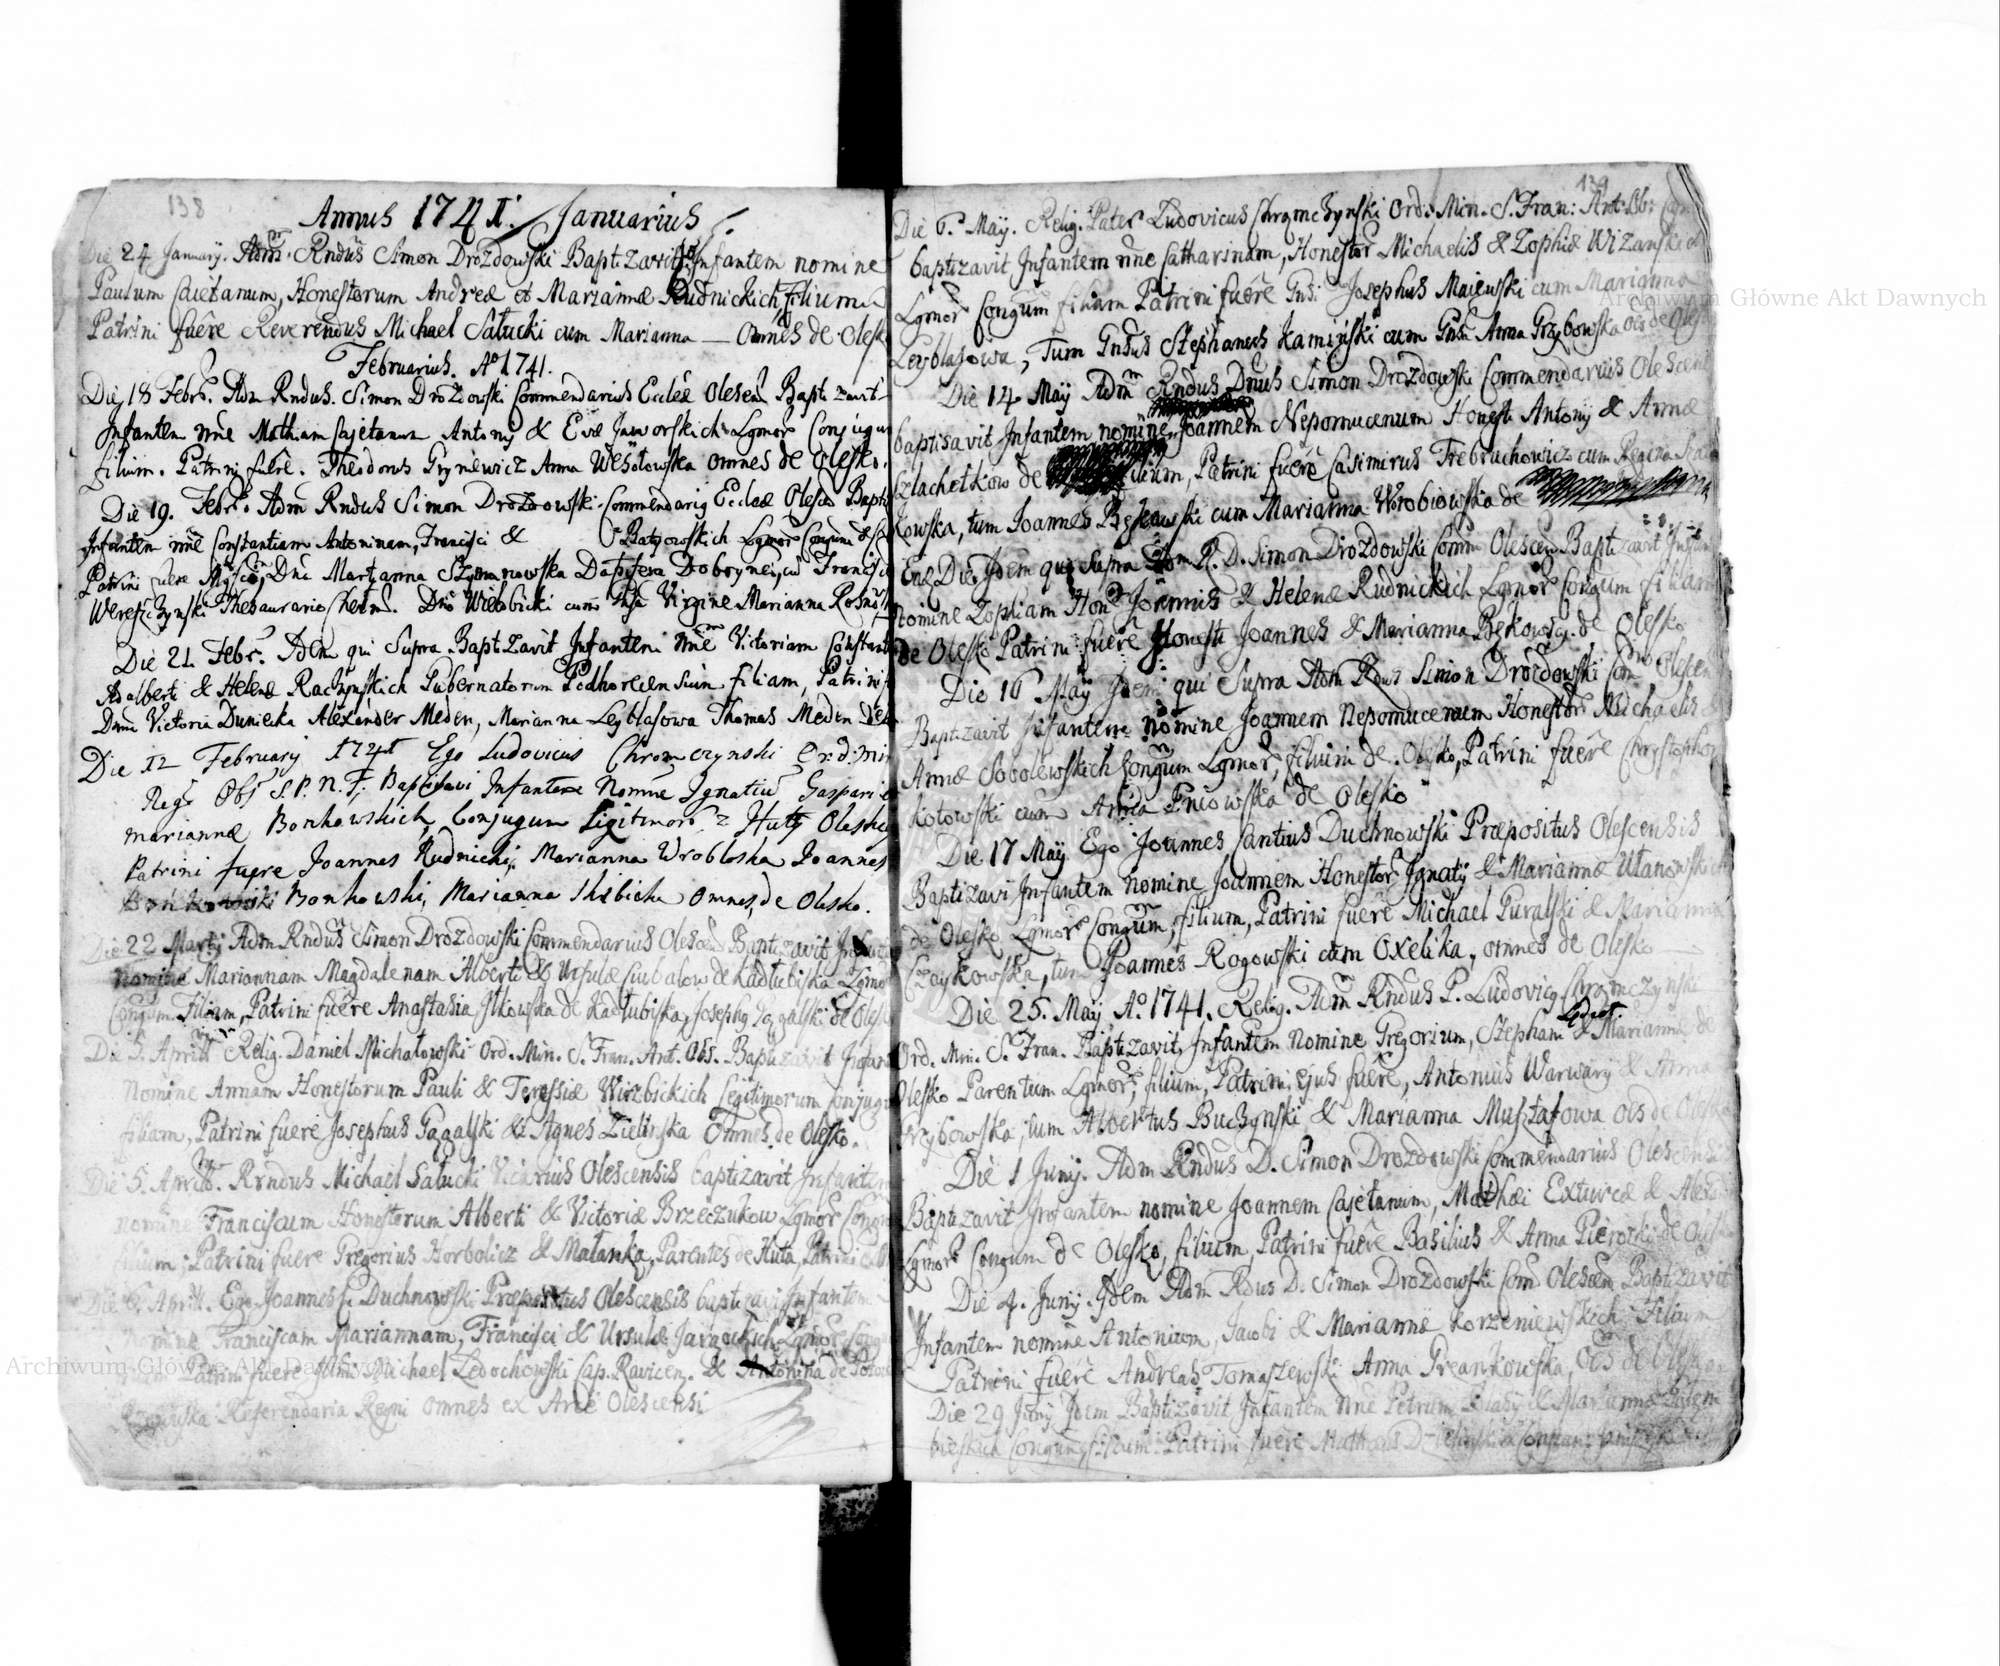 138
Annus 1741. Januarius
Die 24 January. Adm. Rndus Simon Drozdowski Baptizavit Infantem nomine
Paulum Caietanum, Honestorum Andreæ et Mariannæ Rudnickich, filium
Patrini fuêre Reverendus Michael Sałucki cum Marianna — Omnes de Olesko
Februarius. Ao 1741.
Die 18 Febr. Adm Rndus. Simon Drozdowski Commendarius Eccłæ Olescen Baptizavit
Infantem nne Mathiam Cajetanum Antonij & Evæ Jaworskich Lgmor Conjugum
filium. Patrini fuêre. Theodorus Gryniewicz Anna Wesołowska omnes de Olesko.
Die 19. Febr. Adm Rndus Simon Drozdowski Commendarig Eccłæ Olescen Bapti
Infantem nne Constantiam Antoninam, Francisci & Batysowskich Lgmor Conjum
Patrini fuere Mgfica Dna Marianna Szymanowska Dapifera Dobrynen, cu Francisco
Wereszczynski Thesaurario Chelm. Dno Wilbicki cum Virgine Marianna
Die 21. Febr. Idem qui Supra Baptizavit Infantem nne Victoriam Constant
Adalberti & Helenæ Raczynskich Gubernatorum Podhorcensium filiam, Patrini
Dna Victoria Duniecka Alexander Meden, Marianna Leyblasowa Thomas Meden de
Die 12 February 1741 Ego Ludovicus Chromczynski Ord: Min
Reg: Obs S. P. N. F; Baptisavi Infantem Nomne Ignatiu Gaspari et
mariannæ Bonkowskich, Conjugum Ligitimor, z Huty Oleskiey
Patrini fuere Joannes Rudnicki, Marianna Wrobloska Joannes
Bonkowski, Marianna Skibicka Omnes, de Olesko.
Die 22 Martij Adm Rndus Simon Drozdowski Commendarius Olescen Baptizavit Infantem
nomine Mariannam Magdalenam Alberti & Ursulæ Ciubalow de Kadłubiska Lgmor
Congum Filiam, Patrini fuêre Anastasia Ilkowska de Kadłubiska, Josephg Gągalski de Olesko
Die 5. Aprilis Relig. Daniel Michałowski Ord. Min. S. Fran. Ant. Obs. Baptizavit Infant
Nomine Annam Honestorum Pauli & Teressiæ Wirzbickich Legitimorum Conjugum
filiam, Patrini fuere Josephus Gągalski & Agnes Zielinska Omnes de Olesko.
Die 5. Aprilis. Rndus Michael Sałucki Vicarius Olescensis baptizavit Infantem
nomine Franciscum Honestorum Alberti & Victoriæ Brzeczukow Lgmor Congum
filium; Patrini fuere Gregorius Horbolicz & Małanka, Parentes de Huta, Patrini
Die 6. Aprill. Ego Joannes C. Duchnowski Præpositus Olescensis baptizavi Infantem
nomine Franciscam Mariannam, Francisci & Ursulæ Jarnockich Lgmor Congum
filiam Patrini fuere Michael Ledochowski Cap. Ravicen. & Antonina de Potock
Rzewuska Referendaria Regni omnes ex Arce Olescensi
139
Die 6. Maij. Relig. Pater Ludovicus Chromczynski Ord: Min. S. Fran: Ant: Ob:
baptizavit Infantem nne Catharinam, Honestor Michaelis & Zophiæ Wizanskich
Lgmor Congum filiam Patrini fuêre Gnsi Josephus Maiewski cum Marianna
Leyblasowa, Tum Gnsus Stephanus Kaminski cum Gnsa Anna Grzybowska oes de Olesko
Die 14 Maij Adm Rndus Dnus Simon Drozdowski Commendarius Olescen
baptisavit Infantem nomine Joannem Nepomucenum Honest Antonij & Annæ
Szlachetkow de filium, Patrini fuêre Casimirus Trebruchowicz cum Regina
kowska, tum Joannes cum Marianna Wrobiowska de
Eod Die Idem qui Supra Adm R. D. Simon Drozdowski Comm Olescen Baptizavit Infan
nomine Zophiam Hon Joannis & Helenæ Rudnickich Lgmor Congum filiam
de Olesko Patrini fuêre Honesti Joannes & Marianna Bękowscy de Olesko
Die 16 Maij Idem qui Supra Adm Rdus Simon Drozdowski Com Olescen
Baptizavit Infantem nomine Joannem Nepomucenum Honestor Michaelis &
Annæ Sobolewskich Congum Lgmor, filium de Olesko, Patrini fuêre Chrystophor
Kotowski cum Anna Pniowska de Olesko
Die 17 Maij Ego Joannes Cantius Duchnowski Præpositus Olescensis
Baptizavi Infantem nomine Joannem Honestor Ignatij & Mariannæ Ułanowskich
de Olesko Lgmor Congum, filium, Patrini fuêre Michael Guralski & Marianna
Czaykowska, tum Joannes Rogowski cum Oxelika, omnes de Olesko
Die 25. Maij Ao. 1741. Relig. Adm Rndus P. Ludovicg Chromczynski
Ord. Min. S. Fran. Baptizavit, Infantem Nomine Gregorium, Stephani & Mariannæ de
Olesko Parentum Lgmor, filium, Patrini ejus fuêre, Antonius Warwary & Anna
Grzybowska, tum Albertus Buczynski & Marianna Musztafowa oes de Olesko
Die 1 Junij. Adm Rndus D. Simon Drozdowski Commendarius Olescensis
Baptizavit Infantem nomine Joannem Cajetanum, Mathæi Exturcæ &
Lgmor Congum de Olesko, filium, Patrini fuêre Basilius & Anna Pierozki de Olesko
Die 4. Junij. Idem Adm Rdus D. Simon Drozdowski Com Olescen Baptizavit
Infantem nomine Antonium, Jacobi & Mariannæ Korzeniewskich Filium
Patrini fuêre Andreas Tomaszewski Anna oes de Olesko
Die 29 Junij Idem Baptizavit Infantem nne Petrum Blasij & Mariannæ
Congum filium. Patrini fuere Mathias
Archiwum Główne Akt Dawnych
Archiwum Główne Akt Dawnych